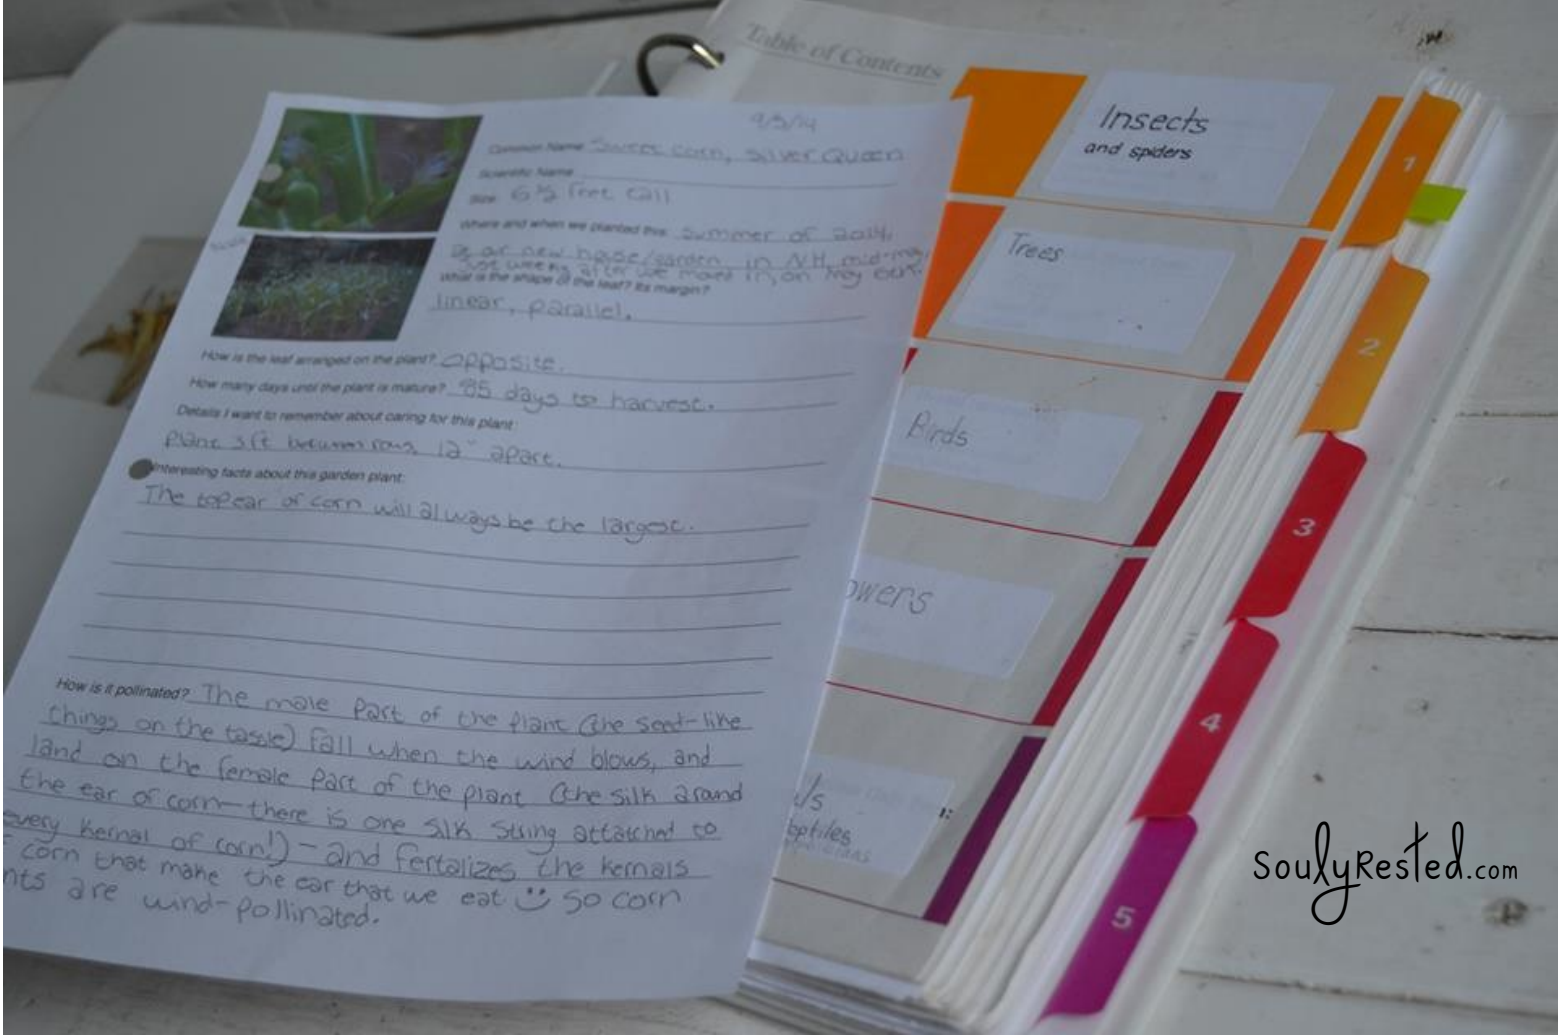 9/5/14
Common Name: Sweet corn, Silver Queen
Scientific Name:
Size: 6 ½ feet tall
Where and when we planted this: Summer of 2014,
at our new house/garden in NH, mid-may,
weeks after we moved in, on May
What is the shape of the leaf? Its margin?
linear, parallel.
How is the leaf arranged on the plant? opposite.
How many days until the plant is mature? 85 days to harvest.
Details I want to remember about caring for this plant:
Plant 3 ft between rows, 12" apart.
Interesting facts about this garden plant:
The top ear of corn will always be the largest.
How is it pollinated? The male part of the plant (the seed-like
things on the tassle) fall when the wind blows, and
land on the female part of the plant (the silk around
the ear of corn—there is one silk string attatched to
every kernal of corn!) - and fertalizes the kernals
corn that make the ear that we eat so corn
nts are wind-pollinated.
Table of Contents
Insects
and spiders
Trees
Birds
owers
ls
eptiles
1
2
3
4
5
soulyRested.com